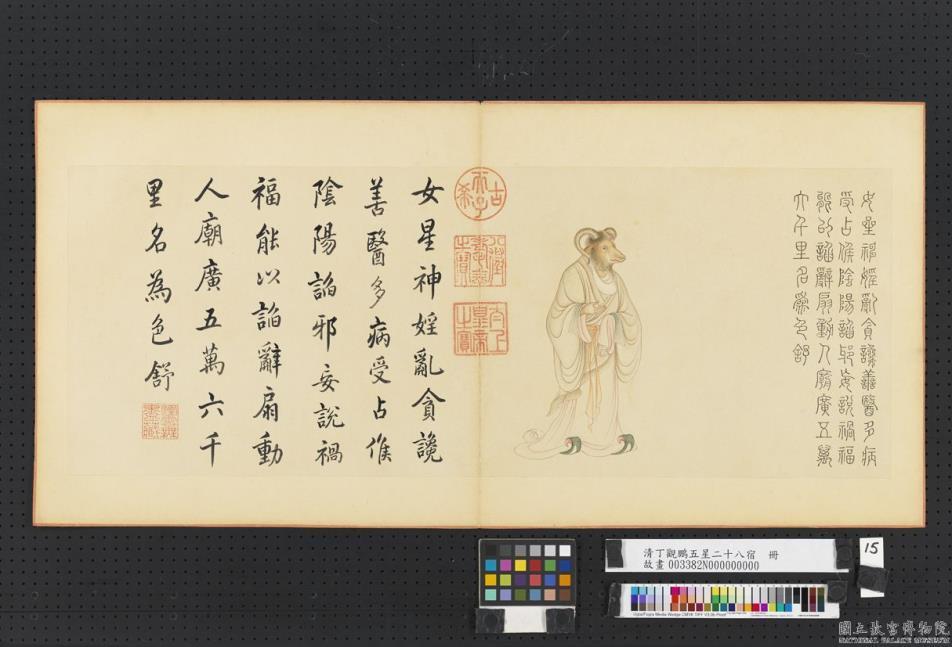 女星神婬亂貪讒善醫多病
受占候陰陽諂邪妄說禍福
能以諂辭扇動人廟廣五萬
六千里名為色舒
古希天子
八徵耄念之寶
太上皇帝之寶
女星神婬亂貪讒
善醫多病受占候
陰陽諂邪妄說禍
福能以諂辭扇動
人廟廣五萬六千
里名為色舒
清丁觀鵬五星二十八宿 冊
故畫 003382N000000000
15
國立故宮博物院
NATIONAL PALACE MUSEUM